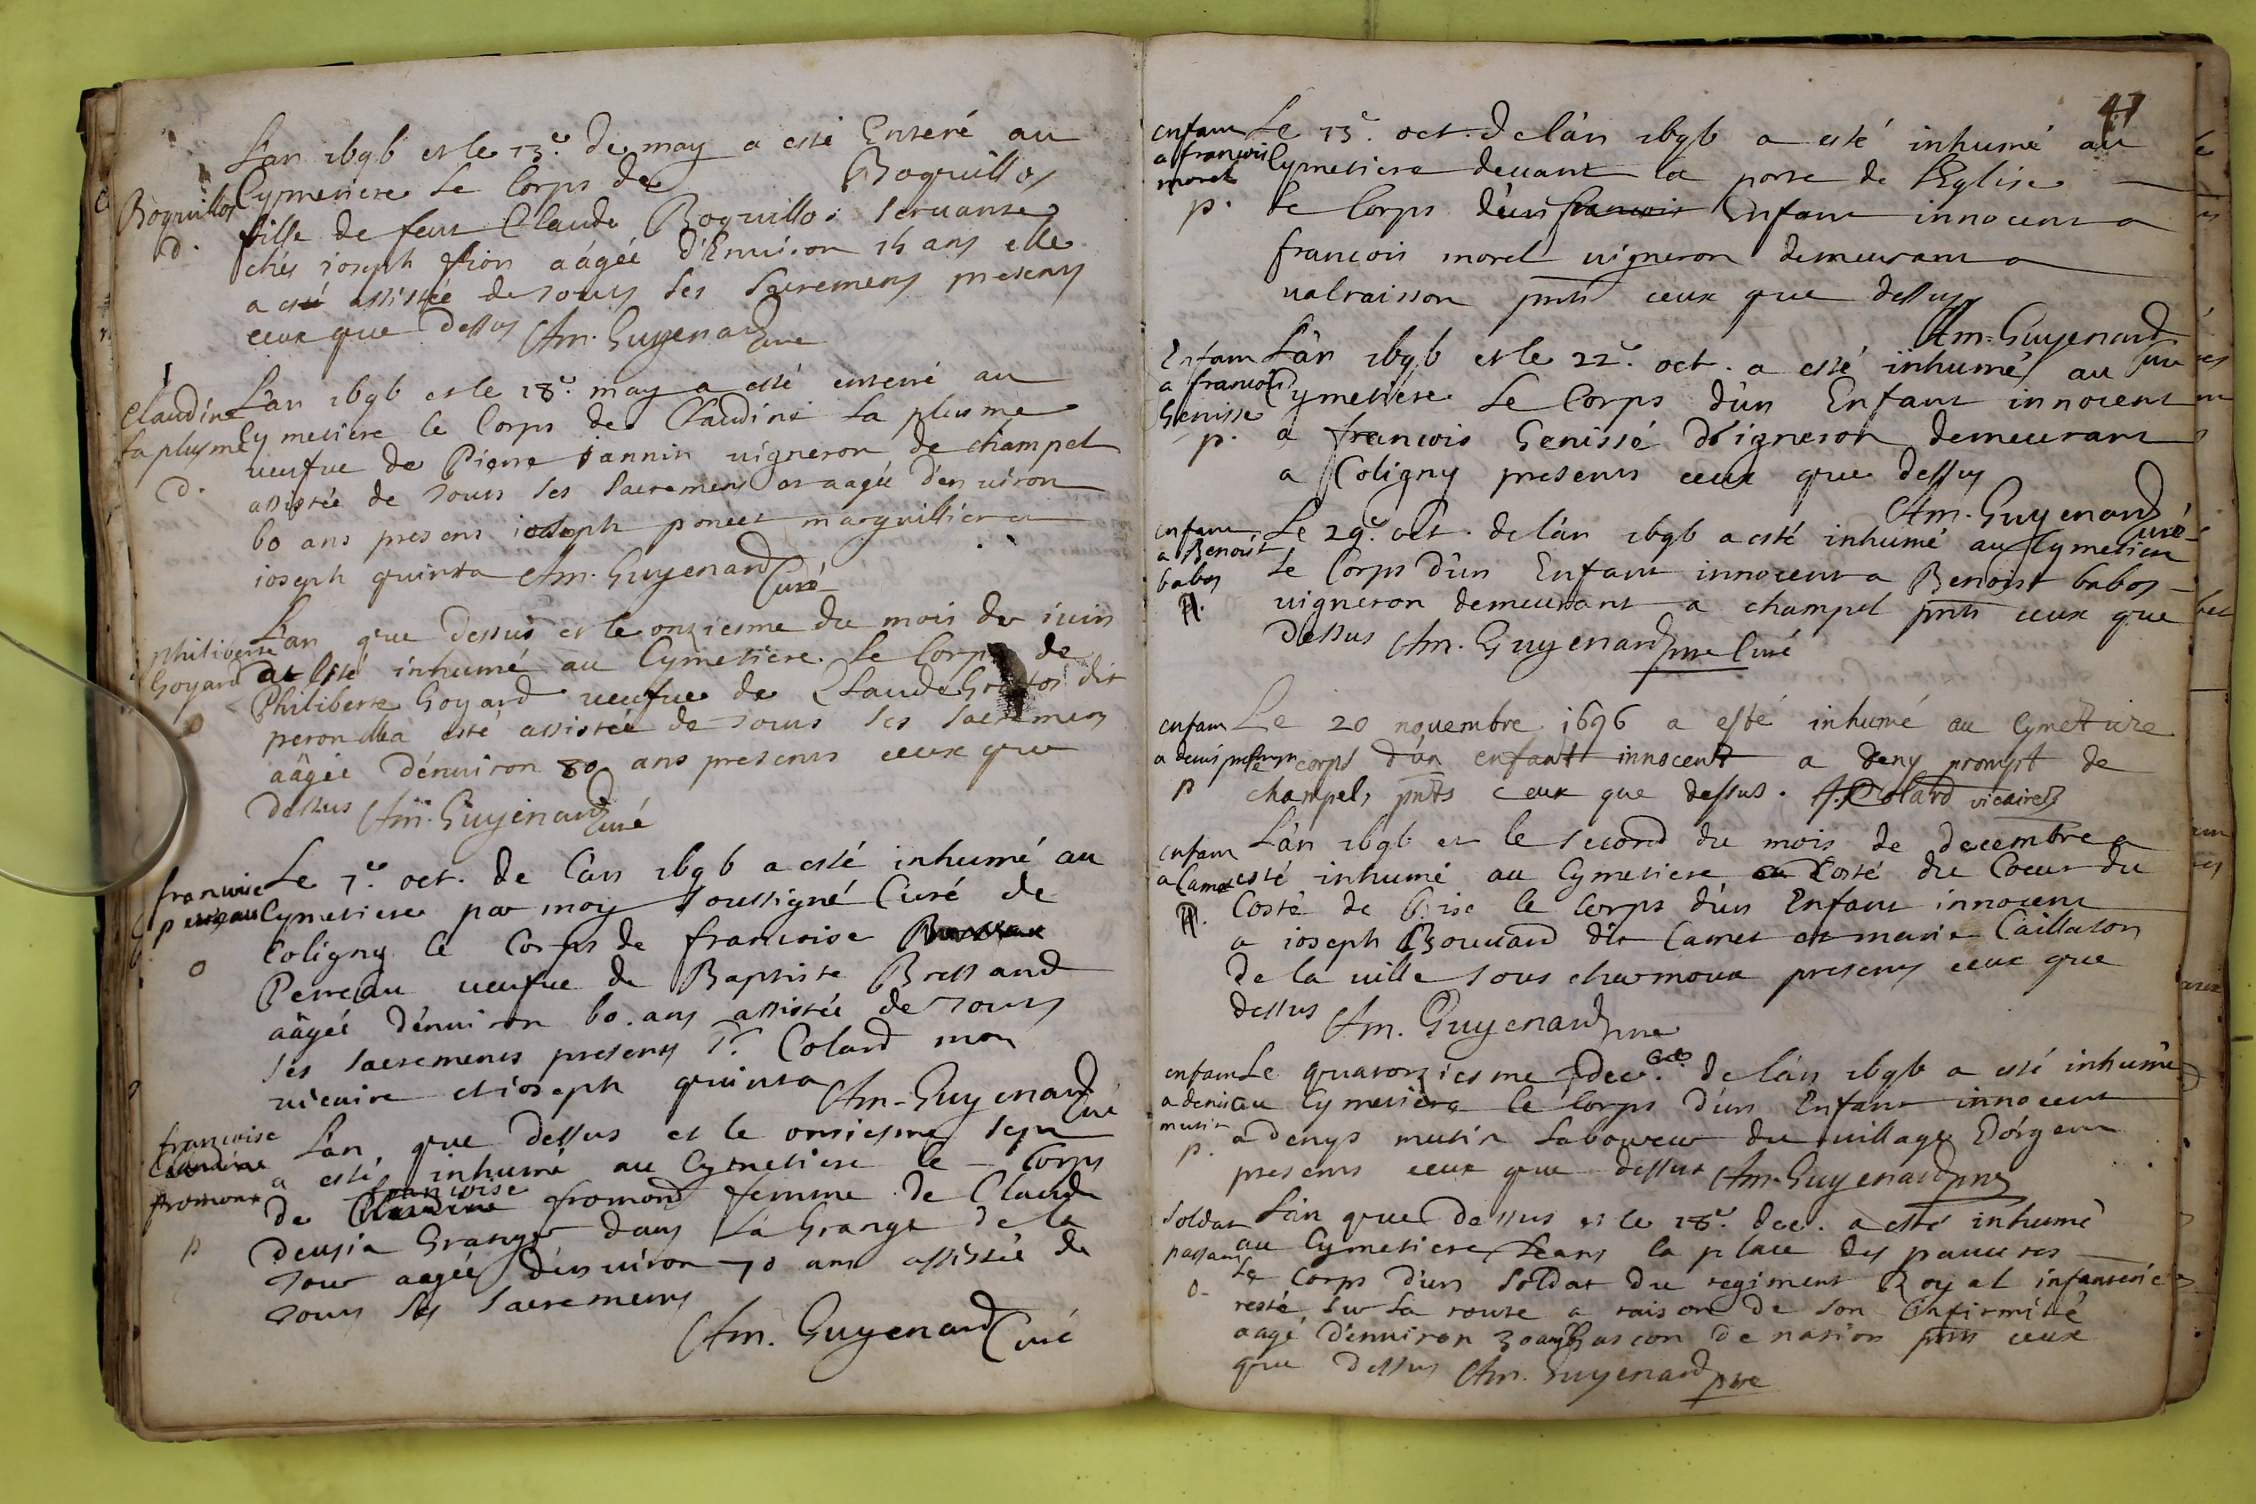 L'an 1696 et le 13e. de may a esté Enteré au
Boquillot
Cymetiere le Corps de Boquillot
d.
fille de feu Claude Boquillot servante
chés ioseph fion aagée d'Enuiron 15 ans elle
a esté assistée de tous les sacremens presents
ceux que dessus Am. Guyenard curé
Claudine
la plusme
d.
L'an 1696 et le 18e. may a esté enterré au
Cymetiere le Corps de Claudine La plusme
ueufue de Pierre iannin uigneron de champel
assistée de tous les sacremens et aagée d'enuiron
60 ans presens ioseph poncet marguillier et
ioseph quinta Am. Guyenard Curé
philiberte
Goyard
o
L'an que dessus et le onziesme du mois de iuin
a esté inhumé au Cymetiere le Corps de
Philiberte Goyard ueufue de Claude dit
peron elle a esté assistée de tous les sacremens
aâgée d'enuiron 80 ans presents ceux que
dessus Am. Guyenard curé
francoise
perreau
o
Le 7e. oct. de l'an 1696 a esté inhumé au
Cymetiere par moy soussigné Curé de
Coligny le Corps de francoise
Perreau ueufue de Baptiste Bressand
aâgée d'enuiron 60. ans assistée de tous
les sacrements presens Colard mon
uicaire et ioseph quinta Am. Guyenard curé
francoise
Claudine
fromont
p
L'an que dessus et le onziesme
a esté inhumé au Cymetiere le Corps
de Claudine francoise fromond femme de Claude
deusia Granger dans la Grange de la
tour aagée d'enuiron 70 ans assistée de
tous les sacremens
Am. Guyenard Curé
47
enfant
a francois
morel
p.
Le 13e. oct. de l'an 1696 a esté inhumé au
Cymetiere deuant la porte de l'Eglise
le Corps d'un francois Enfant innocent a
francois morel uigneron demeurant a
ualraisson pnts ceux que dessus
Am. Guyenard curé
Enfant
a francois
Genisse
p.
L'an 1696 et le 22e. oct. a esté inhumé au
Cymetiere Le Corps d'un Enfant innocent
a francois Genissé Vigneron demeurant
a Coligny presents ceux que dessus
Am. Guyenard Curé
enfant
a Benoist
babos
p.
Le 29e. oct. de l'an 1696 a esté inhumé au Cymetiere
le Corps d'un Enfant innocent a Benoist babos
uigneron demeurant a champel pnts ceux que
dessus Am. Guyenard pre Curé
enfant
a denis prompt
p
Le 20 nouembre 1696 a esté inhumé au Cymettire
le corps d'un enfant innocent a deny prompt de
champel, pnts ceux que dessus. J. Colard vicaire
enfant
a Camet
p.
L'an 1696 et le second du mois de decembre a
esté inhumé au Cymetiere au Costé du Coeur du
Costé de bise le Corps d'un Enfant innocent
a ioseph Bouuard dit Camet et marie Caillaton
de la uille sous charmoux presens ceux que
dessus Am. Guyenard pre
enfant
a denis
mutin
p.
Le quatorziesme decbre. de l'an 1696 a esté inhumé
au Cymetiere le Corps d'un Enfant innocent
a denys mutin laboureur du uillage d'orgeat
presents ceux que dessus Am. Guyenard pre
soldat
passant
o.
L'an que dessus et le 18e. dec. a esté inhumé
au Cymetiere dans la place des pauures
le Corps d'un soldat du regiment Royal infanterie
resté sur la route a raison de son infirmité
aagé d'enuiron 30 ans Gascon de nation pnts ceux
que dessus Am. Guyenard pre